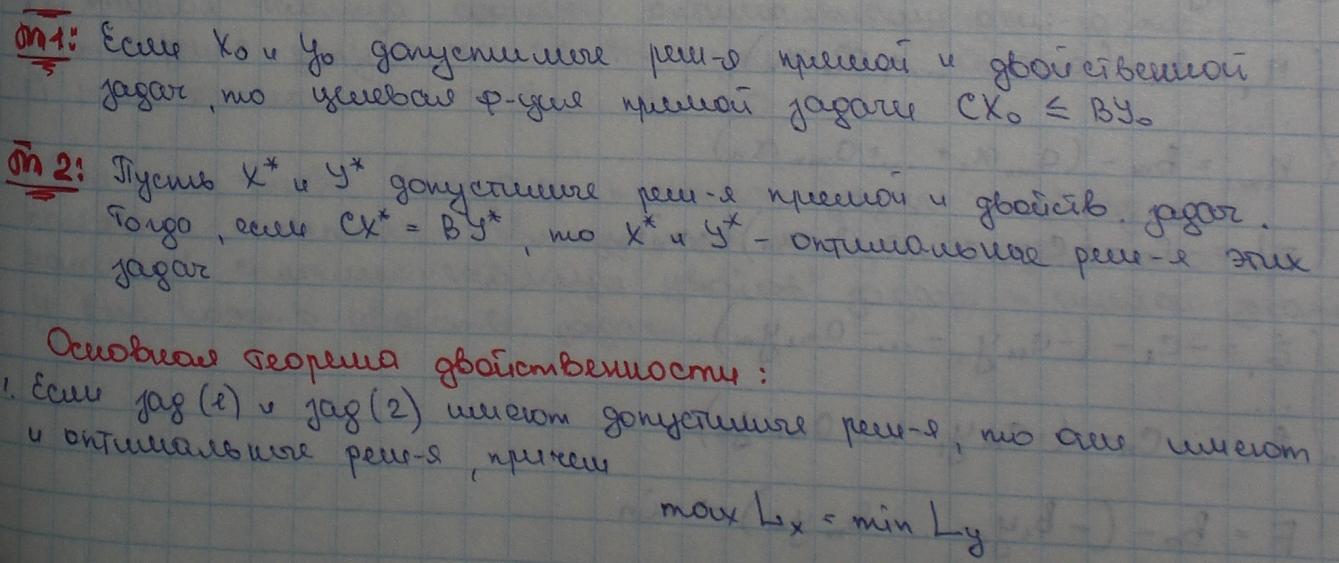 Т1: Если X₀ и Y₀ допустимые реш-я прямой и двойственной
задач, то целевая ф-ция прямой задачи CX₀ ≤ BY₀
Т2: Пусть X* и Y* допустимые реш-я прямой и двойств. задач.
Тогда, если CX* = BY*, то X* и Y* - оптимальные реш-я этих
задач
Основная теорема двойственности:
1. Если зад(1) и зад(2) имеют допустимые реш-я, то они имеют
и оптимальные реш-я, причем
max Lx = min Ly